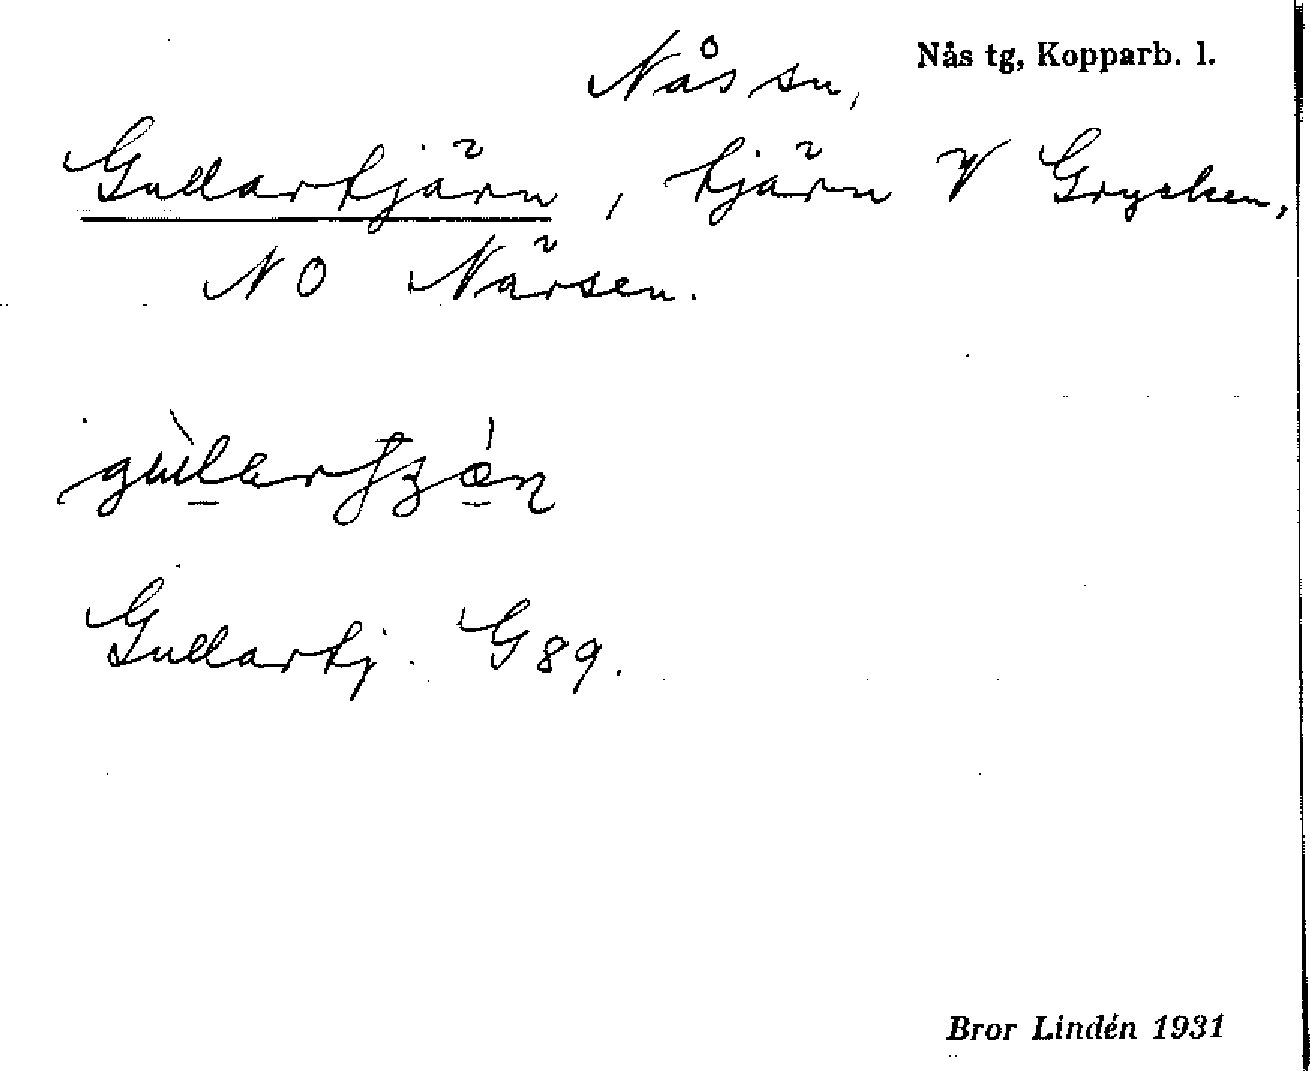 Nås sn,
Nås tg, Kopparb. l.
Gullartjärn, tjärn V Grycken,
NO Närsen.
Gullartj. G 89.
Bror Lindén 1931